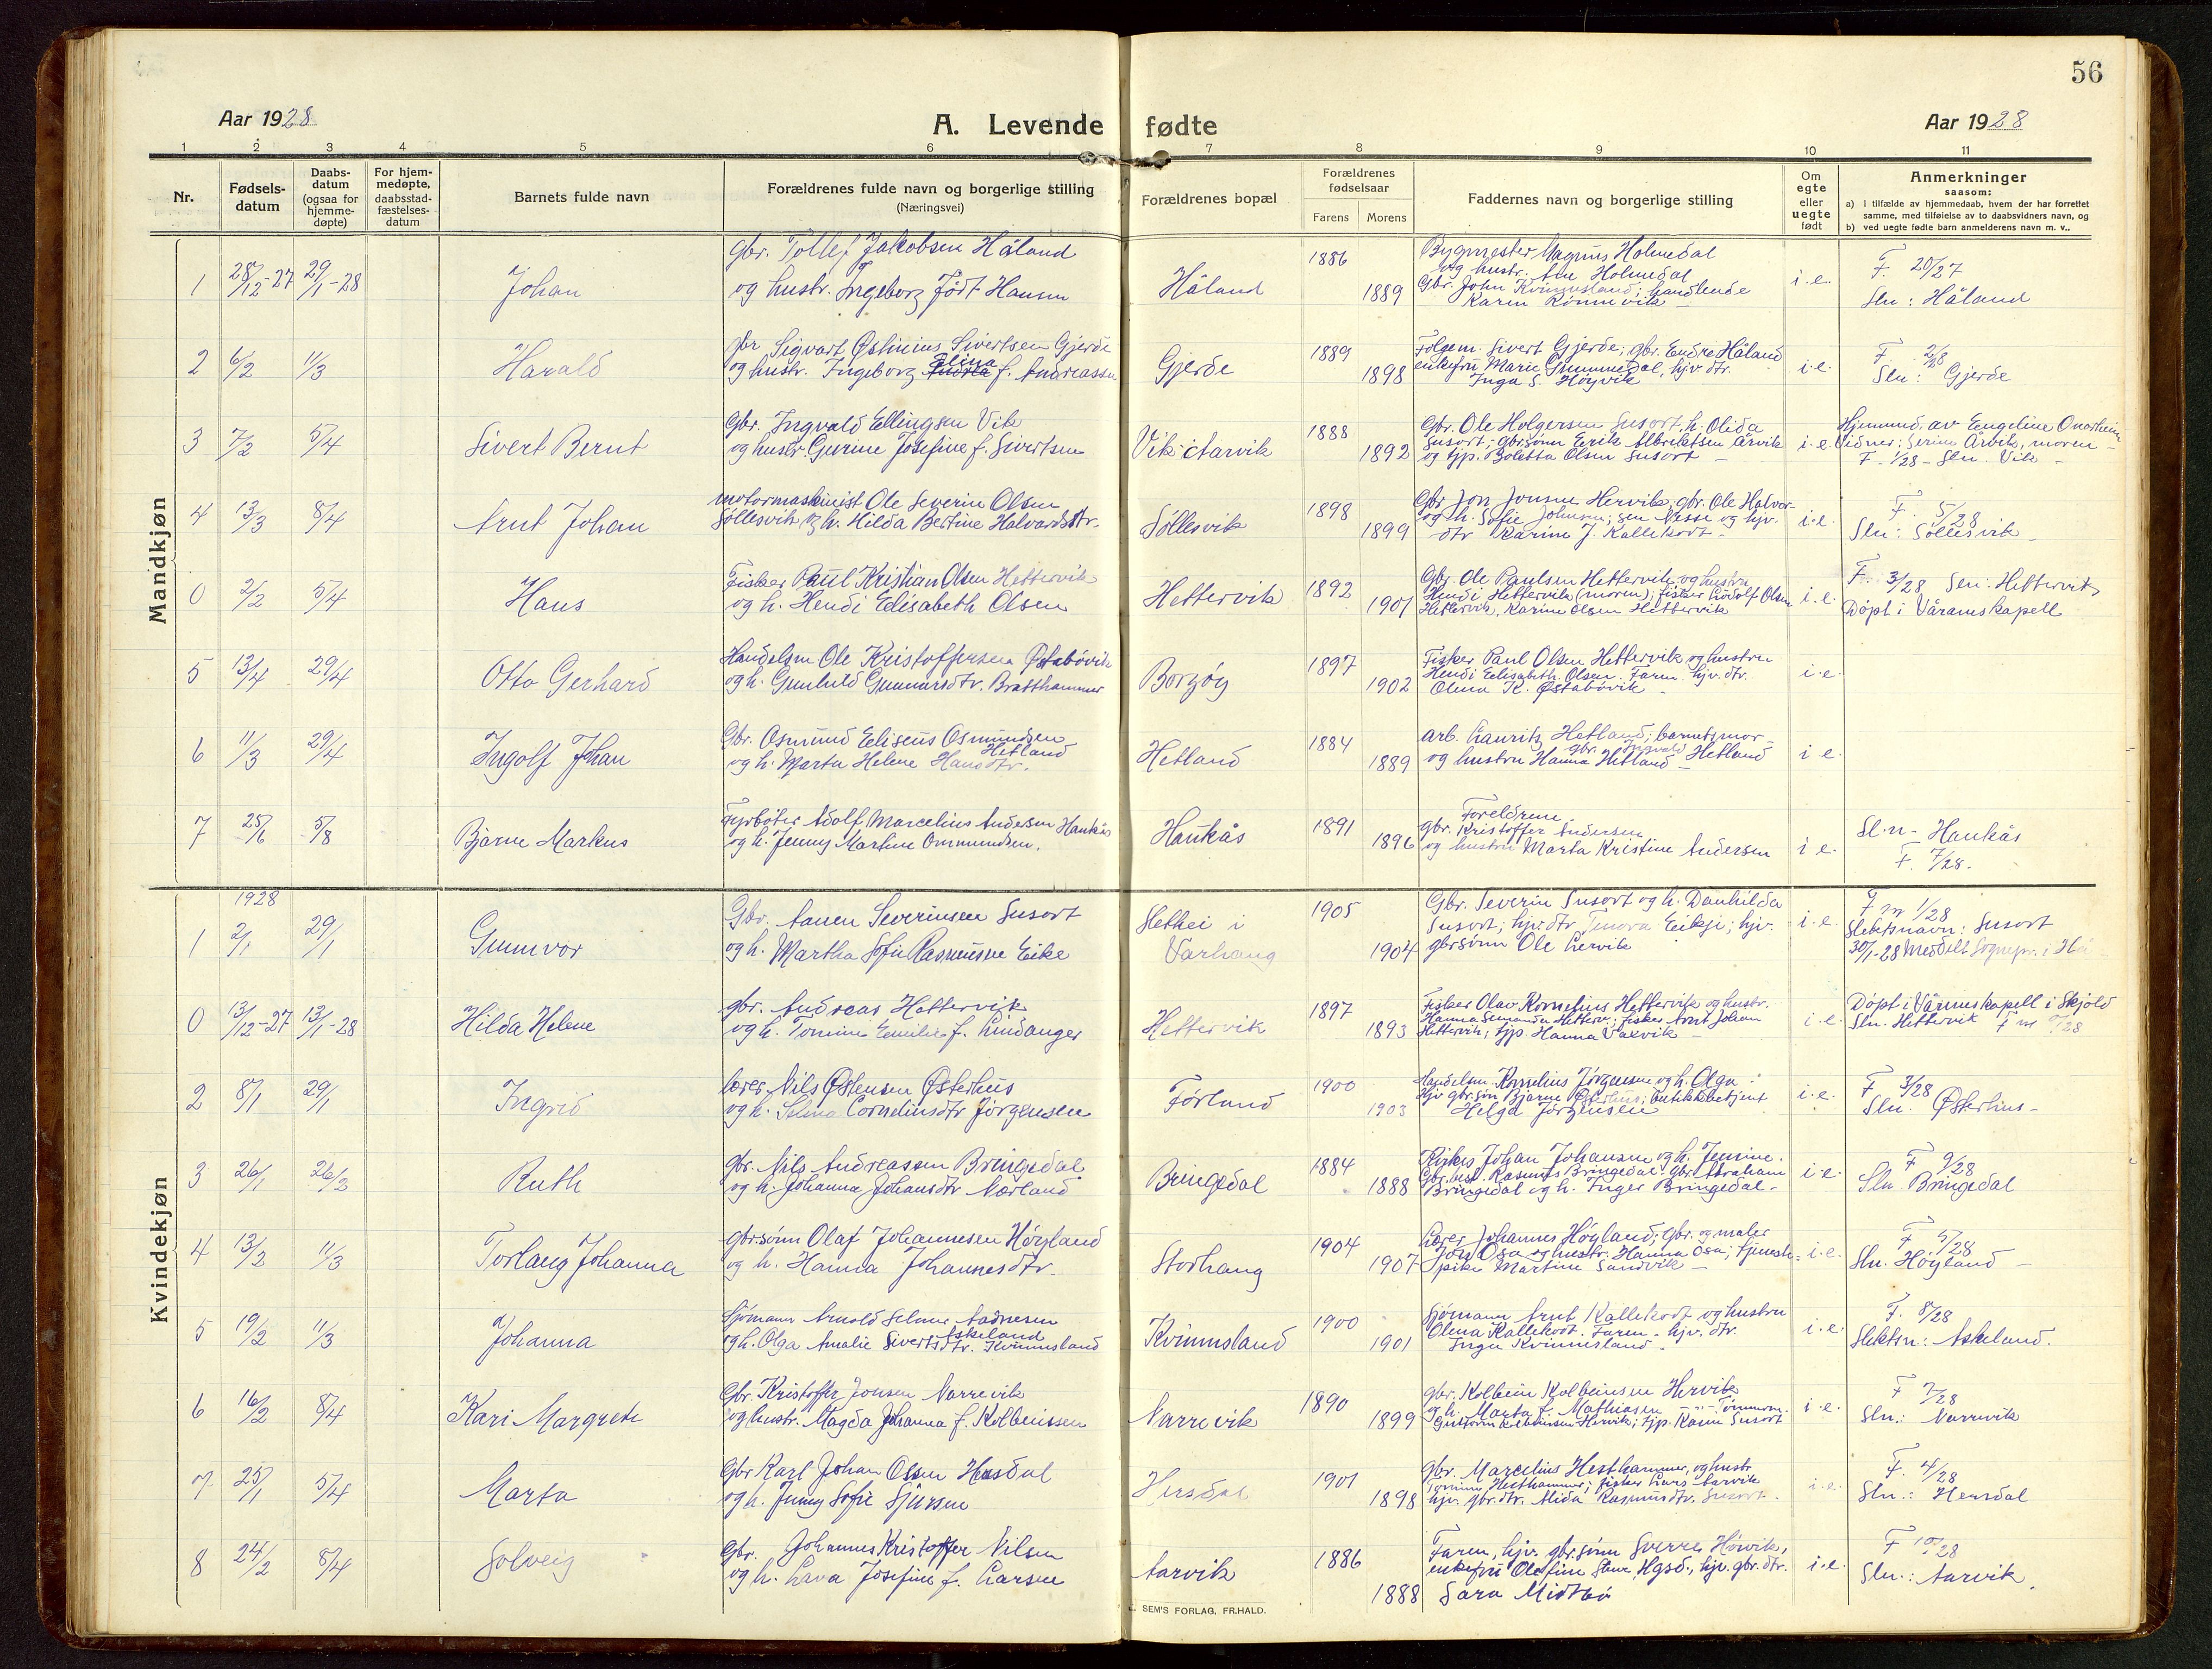 56
Aar 1928
A. Levende fødte
Aar 1928
1 2 3 4 5 6 7 8 9 10 11
Nr.
Fødsels-
datum
Daabs-
datum
(ogsaa for
hjemme-
døpte)
For hjem-
medøpte,
daabsstad-
fæstelses-
datum
Barnets fulde navn
Forældrenes fulde navn og borgerlige stilling
(Næringsvei)
Forældrenes bopæl
Forældrenes
fødselsaar
Farens
Morens
Faddernes navn og borgerlige stilling
Om
egte
eller
uegte
født
Anmerkninger
saasom:
a) i tilfælde av hjemmedaab, hvem der har forrettet
samme, med tilføielse av to daabsvidners navn, og
b) ved uegte fødte barn anmelderens navn m. v..
Mandkjøn
1 28/12-27 29/1-28 Johan
Gbr. Tollef Jakobsen Håland
og hustr. Ingeborg født Hansen
Håland 1886 1889
Bygmester Magnus Holmedal
og hustr. Ane Holmedal
Gbr. John Kvinnesland; handlende
Karen Rønnevik
i.e.
F. 20/27
Sln: Håland
2 6/2 11/3 Harald
gbr Sigvart Østinius Sivertsen Gjerde
og hustr. Ingeborg Elina f. Andreassen
Gjerde 1889 1898
Følgem. Sivert Gjerde; gbr. Endre Håland
enkefru Marie Grummedal, hjv. dtr.
Inga S. Høyvik
i.e.
F. 2/28
Sln: Gjerde
3 7/2 5/4 Sivert Bernt
Gbr. Ingvald Ellingsen Vik
og hustr Gurine Josefine f. Sivertsen
Vik i Aarvik 1888 1892
Gbr. Ole Holgersen Susort, h. Olida
Susort; gbrsønn Eerik Albrektsen Årvik
og tjp. Boletta Olsen Susort
i.e.
Hjemmd. av Engeline
Vidner: Serine Årvik, moren
F. 1/28 - Sln. Vik
4 13/3 8/4 Arnt Johan
motormaskinist Ole Severin Olsen
Søllesvik og h. Hilda Bertine Halvardsdtr.
Søllesvik 1898 1899
Gbr Jon Jonsen Hervik; gbr. Ole Halvor-
og h. Sofie Johnsen; sen Nesse og hjv.
dtr Karine J. Kallekodt
i.e.
F. 5/28
Sln: Søllesvik
0 2/2 5/4 Hans
Fisker Paul Kristian Olsen Hettervik
og h. Hendi Elisabeth Olsen
Hettervik 1892 1901
Gbr. Ole Paulsen Hettervik og hustru
Hendi Hettervik (moren); fisker Lodolf Olsen
Hettervik, Karine Olsen Hettervik
i.e.
F. 3/28 Sln: Hettervik
Døpt i Vårams kapell
5 13/4 29/4 Otto Gerhard
Handelsm Ole Kristoffersen Østabøvik
og h. Gunhild Gunnarsdtr. Bratthammer
Borgøy 1897 1902
Fisker Paul Olsen Hettervik og hustru
Hendi Eelisabeth Olsen. Faren. hjv. dtr.
Olena K. Østabøvik
i.e.
6 11/3 29/4 Ingolf Johan
Gbr. Osmund Eliseus Osmundsen
Hetland
og h. Marta Helene Hansdtr.
Hetland 1884 1889
arb. Lauritz Hetland; barnetsmor
gbr. Ingvald Hetland
og hustru Hanna Hetland
i.e.
7 25/6 5/8 Bjarne Markus
Fyrbøter Adolf Marcelius Andersen Haukås
og h. Jenny Martine Ommundsen.
Haukås 1891 1896
Foreldrene
gbr. Kristoffer Andersen
og hustru Marta Kristine Andersen
i.e.
Sl.n - Haukås
F. 7/28.
Kvindekjøn
1928
1 2/1 29/1 Gunnvor
Gbr. Aanen Severinsen Susort
og h. Martha Sofie Rasmussen Eike
Slettei i
Varhaug
1905 1904
Gbr. Severin Susort og h. Danhilda
Susort; hjv. dtr Tenora Eikje; hjv.
gbrsønn Ole Lervik
i.e.
F m 1/28
Slektsnavn: Susort
30/1-28 Meddelt Sognepr. i Hå
0 13/12-27 13/1-28 Hilda Helene
gbr. Andreas Hettervik
og h. Tomine Emilie f. Lindanger
Hettervik 1897 1893
Fisker Olav Kornelius Hettervik og hustr.
Hanna Hetterv.; fisker Arnt Johan
Hettervik; tjp. Hanna Valvik
i.e.
Døpt i Vårams kapell i Skjold
Sln. Hettervik
2 8/1 29/1 Ingrid
lærer Nils Østensen Østerhus
og h. Selma Corneliusdtr Jørgensen
Førland 1900 1903
Handelsm. Kornelius Jørgensen og h. Olga
Hjv gbr.søn Bjarne Østerhus; butikkbetjent
Helga Jørgensen
i.e.
F 3/28
Sln. Østerhus
3 26/1 26/2 Ruth
gbr. Nils Andreassen Bringedal
og h. Johanna Johansdtr Nærland
Bringedal 1884 1888
Johan Johansen og h. Jensine.
Gbr.best. Rasmus Bringedal. gbr. Abraham
Bringedal og h. Inger Bringedal
i.e.
F 9/28
Sln. Bringedal
4 13/2 11/3 Torlaug Johanna
gbrsønn Olaf Johannesen Høyland
og h. Hanna Johannesdtr.
Storhaug 1904 1907
Lærer Johannes Høyland; gbr. og maler
Jon Osa og hustr. Hanna Osa; tjeneste-
pike Martine Sandvik
i.e.
F 5/28
Sln. Høyland
5 19/2 11/3 Johanna
Sjømann Arnold Selmer Aadnesen
Askeland
og h. Olga Amalie Sivertsdtr. Kvinnesland
Kvinnesland 1900 1901
Sjømann Arnt Kallekodt og hustru
Olena Kallekodt. Faren - hjv. dtr.
Inga Kvinnesland
i.e.
F. 8/28
Slektsn: Askeland.
6 16/2 8/4 Kari Margrete
Gbr. Kristoffer Jonsen Narrevik
og hustr. Magda Johanna f. Kolbeinssen
Narrevik 1890 1899
gbr. Kolbein Kolbeinsen Hervik
og h. Marta f. Mathiasen
Kolbeinsen Hervik; tjp. Karen Susort
i.e.
F 7/28
Sln.: Narrevik
7 25/1 5/4 Marta
Gbr Karl Johan Olsen Hersdal
og h. Jenny Sofie Sjursen
Hersdal 1901 1898
gbr. Marcelius Hesthammer, og hustr
Tomine Hesthammer; fisker Lars Aarvik
hjv. gbr.dtr. Alida Rasmusdtr. Susort
i.e.
F. 4/28
Sln.: Hersdal
8 24/2 8/4 Solveig
Gbr. Johannes Kristoffer Nilsen
og h. Lava Josefine f. Larsen
Aarvik 1886 1888
Faren, hjv. gbr.sønn Sverre Høivik,
enkefru Olefine Stene, Hgsd., hjv. gbr.dtr.
Sara Midtbø
i.e.
F 10/28
Sln.: Aarvik.
SEM'S FORLAG, FR.HALD.